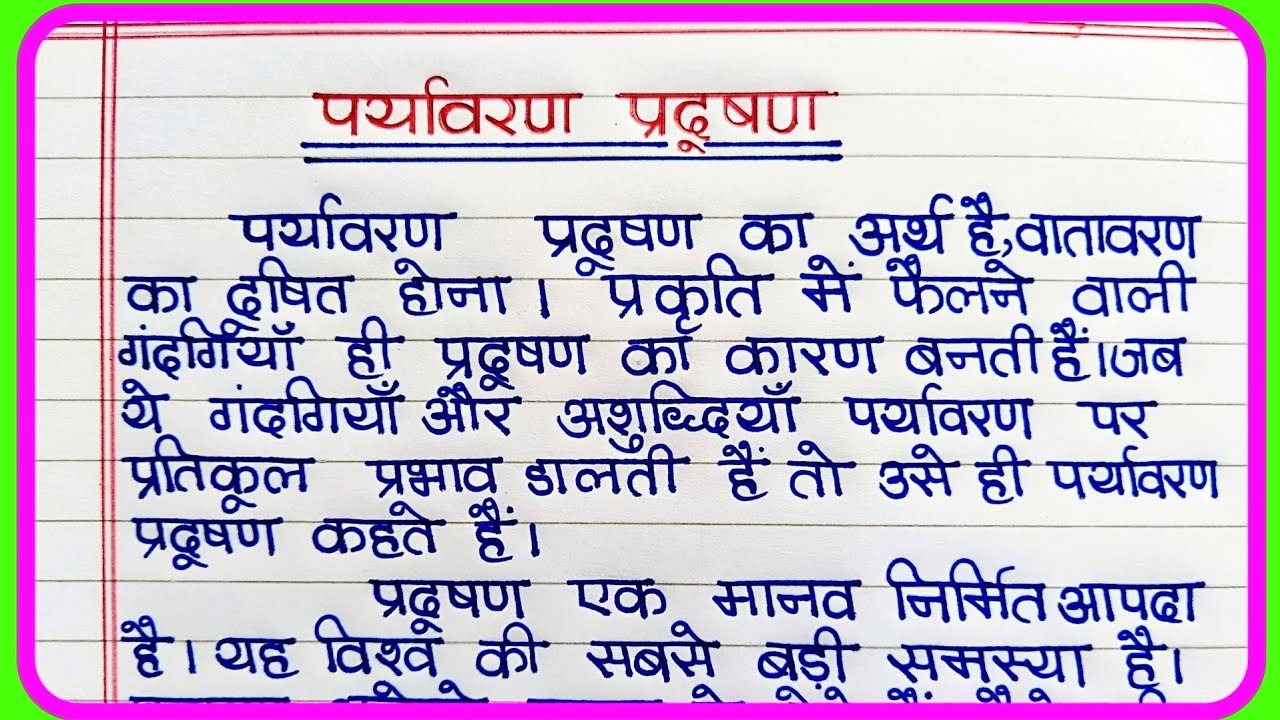 पर्यावरण प्रदूषण
पर्यावरण प्रदूषण का अर्थ है, वातावरण
का दूषित होना। प्रकृति में फैलने वाली
गंदगियाँ ही प्रदूषण का कारण बनती हैं। जब
ये गंदगियाँ और अशुद्धियाँ पर्यावरण पर
प्रतिकूल प्रभाव डालती हैं तो उसे ही पर्यावरण
प्रदूषण कहते हैं।
प्रदूषण एक मानव निर्मित आपदा
है। यह विश्व की सबसे बड़ी समस्या है।